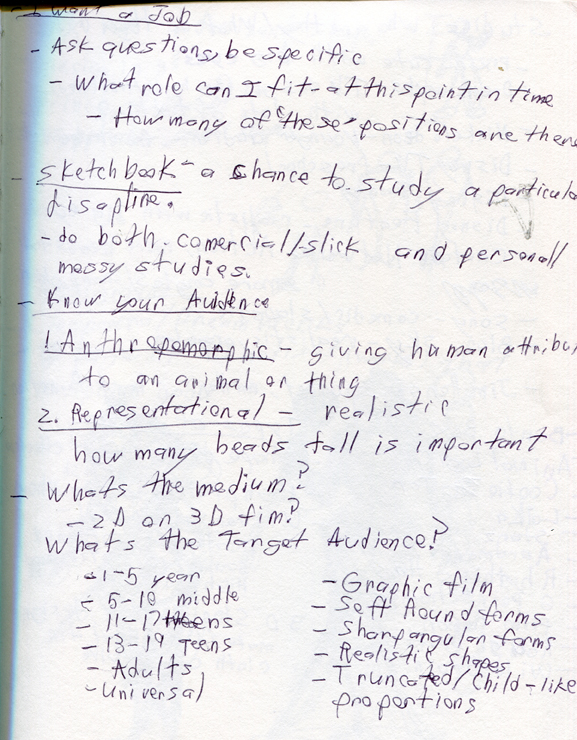 - I want a Job
- Ask questions, be specific
- What role can I fit - at this point in time
- How many of "these" positions are there
- sketchbook - a chance to study a particula
disapline.
- do both comercial/slick and personal/
messy studies.
- Know your Auidence
1. Anthropomorphic - giving human attribu
to an animal or thing
2. Representational - realistic
how many beads tall is important
- Whats the medium?
- 2D or 3D fim?
Whats the Target Audience?
- 1-5 year
- 5-10 middle
- 11-17 teens
- 13-19 Teens
- Adults
- Universal
- Graphic film
- Soft Round forms
- Sharp angular forms
- Realistic shapes
- Truncated/Child-like
proportions